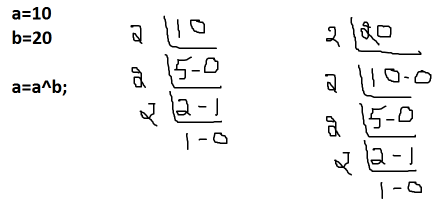 a=10
b=20
a=a^b;
2 10
2 5-0
2 2-1
1-0
2 20
2 10-0
2 5-0
2 2-1
1-0